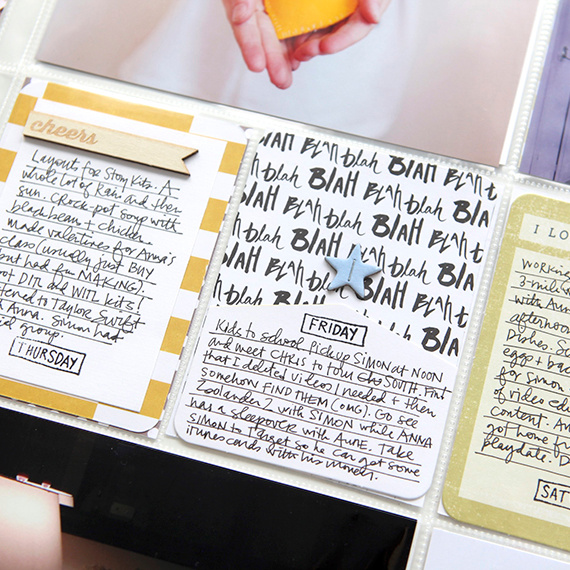 cheers
Layouts for Story Kits. A
whole lot of Rain and then
sun. Crock-pot soup with
black bean + chicken.
made valentines for Anna's
class (usually just BUY
but had fun MAKING).
DIM and WTL kits!
listened to Taylor Swift
Anna. Simon had
group.
THURSDAY
BLAH BLAH blah BLAH BLAH
BLAH BLAH blah BLAH BLAH blah
blah BLAH BLAH blah BLAH
BLAH BLAH blah BLAH BLAH blah
blah BLAH BLAH blah BLAH
BLAH BLAH blah BLAH
blah BLAH
FRIDAY
Kids to school. Pick up SIMON at NOON
and meet CHRIS to tour SOUTH.
that I deleted videos I needed + then
somehow FIND THEM (OMG). Go see
Zoolander 2 with SIMON while ANNA
has a sleepover with AUNT. Take
SIMON to Target so he can get some
iTunes cards with his money.
I LO
WORKING
3-mile
with Anna
afternoon
Dishes. S
eggs + bac
for Simon
of video ed
content. An
got home f
playdate. D
SAT